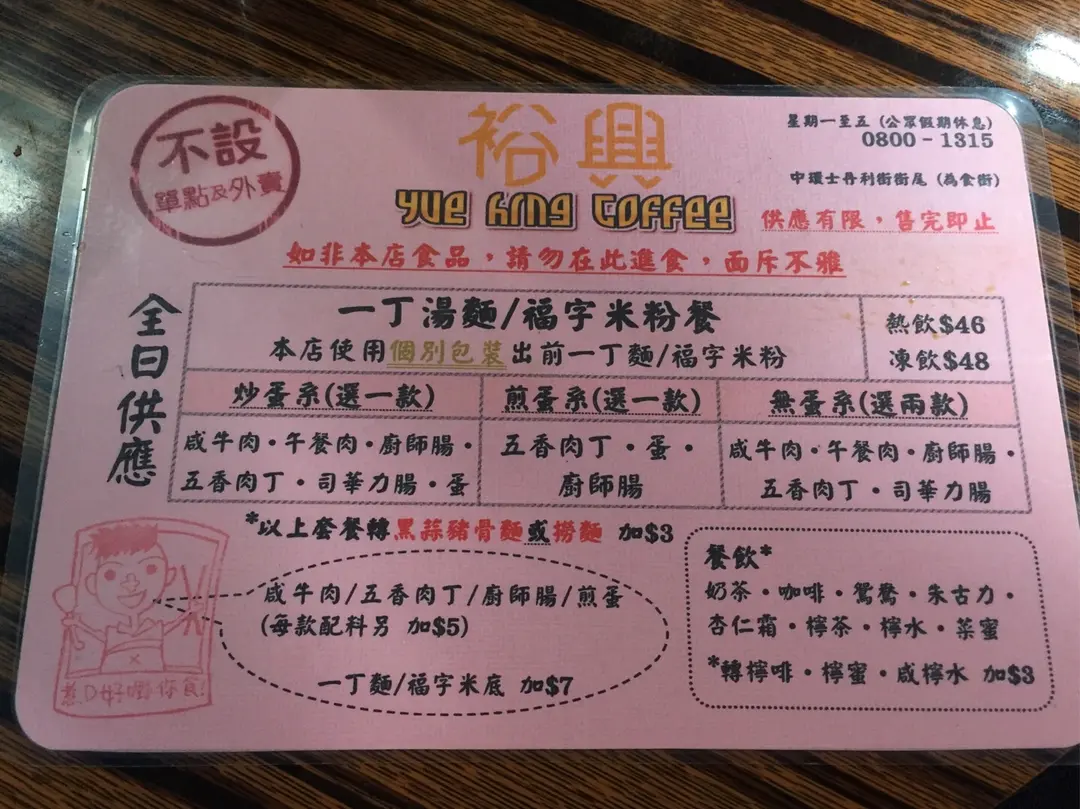 不設
單點及外賣
裕興
Yue Hing Coffee
星期一至五 (公眾假期休息)
0800 - 1315
中環士丹利街街尾 (為食街)
供應有限，售完即止
如非本店食品，請勿在此進食，面斥不雅
全日供應
一丁湯麵/福字米粉餐
本店使用個別包裝出前一丁麵/福字米粉
熱飲$46
凍飲$48
炒蛋系(選一款)
咸牛肉·午餐肉·廚師腸·
五香肉丁·司華力腸·蛋
煎蛋系(選一款)
五香肉丁·蛋·
廚師腸
無蛋系(選兩款)
咸牛肉·午餐肉·廚師腸·
五香肉丁·司華力腸
*以上套餐轉黑蒜豬骨麵或撈麵 加$3
咸牛肉/五香肉丁/廚師腸/煎蛋
(每款配料另 加$5)
一丁麵/福字米底 加$7
煮D好嘢你食!
餐飲*
奶茶·咖啡·鴛鴦·朱古力·
杏仁霜·檸茶·檸水·菜蜜
*轉檸啡·檸蜜·咸檸水 加$3